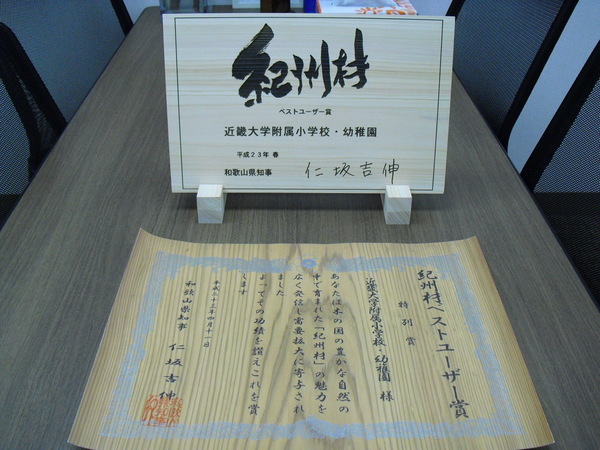 紀州材
ベストユーザー賞
近畿大学附属小学校・幼稚園
平成23年 春
和歌山県知事 仁坂吉伸
紀州材ベストユーザー賞
特別賞
近畿大学附属小学校・幼稚園 様
あなたは木の国の豊かな自然の
中で育まれた「紀州材」の魅力を
広く発信し需要拡大に寄与され
ました
よってその功績を讃えこれを賞
します
平成二十三年四月十一日
和歌山県知事 仁坂吉伸